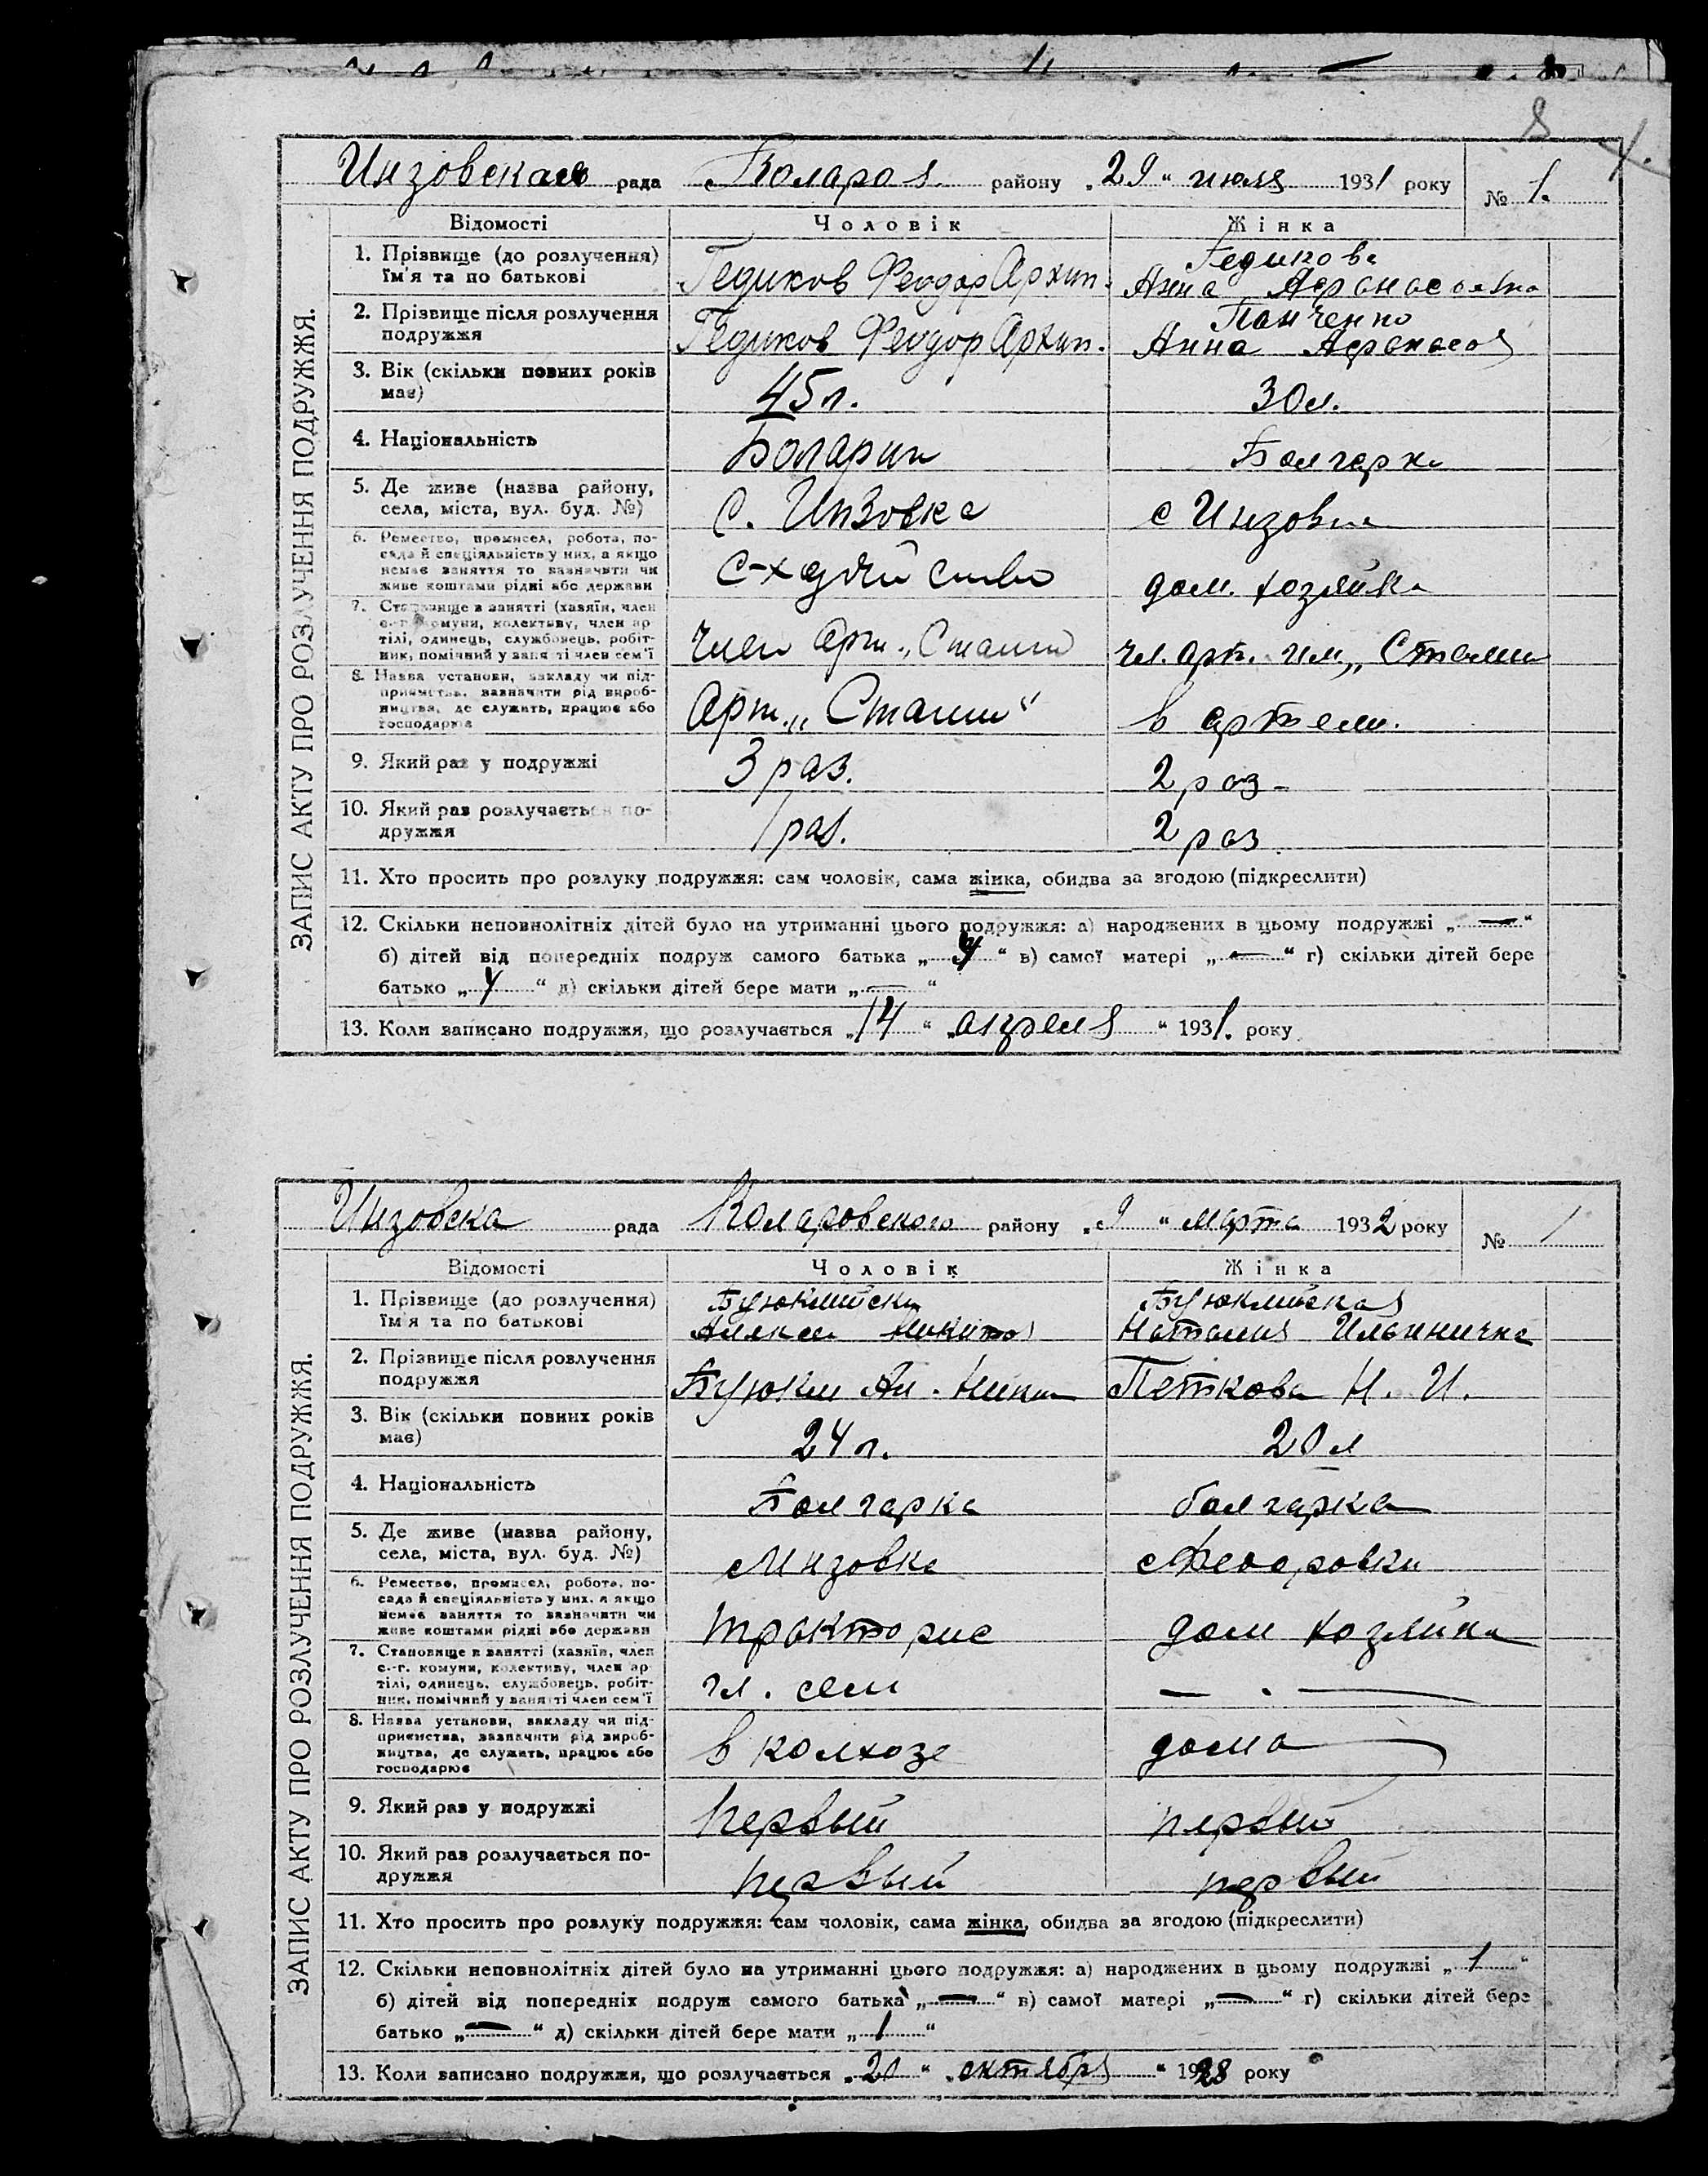 8
Инзовская рада Коларов. району „29“ июля 1931 року № 1.
Відомості Чоловік Жінка
ЗАПИС АКТУ ПРО РОЗЛУЧЕННЯ ПОДРУЖЖЯ.
1. Прізвище (до розлучення) їм'я та по батькові
Гедиков Феодор Архип.
Гедикова
Анна Афанасовна
2. Прізвище після розлучення подружжя
Гедиков Феодор Архип.
Панченко
Анна Афанасов
3. Вік (скільки повних років має)
45 л.
30 л.
4. Національність
Боларин
Болгарка
5. Де живе (назва району, села, міста, вул. буд. №)
с. Инзовка
с Инзовка
6. Ремество, промисел, робота, по-
сада й спеціяльність у них, а якщо
немає заняття то зазначити чи
живе коштами рідні або держави
дом. хозяйка
7. Становище в занятті (хазяїн, член
с.-г. комуни, колективу, член ар
тілі, одинець, службовець, робіт-
ник, помічний у занятті член сем'ї
член арт. „Сталин
чл. арт. им. „Сталин
8. Назва установи, закладу чи під-
приємства, зазначити рід вироб-
ництва, де служить, працює або
господарює
Арт. „Сталин“
в артели.
9. Який раз у подружжі
3 раз.
2 раз-
10. Який раз розлучається по-
дружжя
1 раз.
2 раз
11. Хто просить про розлуку подружжя: сам чоловік, сама жінка, обидва за згодою (підкреслити)
12. Скільки неповнолітніх дітей було на утриманні цього подружжя: а) народжених в цьому подружжі „—“
б) дітей від попередніх подруж самого батька „4“ в) самої матері „—“ г) скільки дітей бере
батько „4“ д) скільки дітей бере мати „—“
13. Коли записано подружжя, що розлучається „14“ „апреля“ 1931. року
Инзовска рада Коларовского району „9“ марта 1932 року № 1
Відомості Чоловік Жінка
ЗАПИС АКТУ ПРО РОЗЛУЧЕННЯ ПОДРУЖЖЯ.
1. Прізвище (до розлучення) їм'я та по батькові
Буюклийски
Алексей Никитов
Буюклийская
Наталия Ильинична
2. Прізвище після розлучення подружжя
Буюкли Ал. Никит
Петкова Н. И.
3. Вік (скільки повних років має)
24 л.
20 л
4. Національність
Болгарка
болгарка
5. Де живе (назва району, села, міста, вул. буд. №)
с Инзовка
с Федоровки
6. Ремество, промисел, робота, по-
сада й спеціяльність у них, а якщо
немає заняття то зазначити чи
живе коштами рідні або держави
тракторис
дом хозяйка
7. Становище в занятті (хазяїн, член
с.-г. комуни, колективу, член ар
тілі, одинець, службовець, робіт-
ник, помічний у занятті член сем'ї
чл. сем
— . —
8. Назва установи, закладу чи під-
приємства, зазначити рід вироб-
ництва, де служить, працює або
господарює
в колхозе
дома
9. Який раз у подружжі
первый
первый
10. Який раз розлучається по-
дружжя
первый
первый
11. Хто просить про розлуку подружжя: сам чоловік, сама жінка, обидва за згодою (підкреслити)
12. Скільки неповнолітніх дітей було на утриманні цього подружжя: а) народжених в цьому подружжі „1“
б) дітей від попередніх подруж самого батька „—“ в) самої матері „—“ г) скільки дітей бере
батько „—“ д) скільки дітей бере мати „1“
13. Коли записано подружжя, що розлучається „20“ „октября“ 1928 року